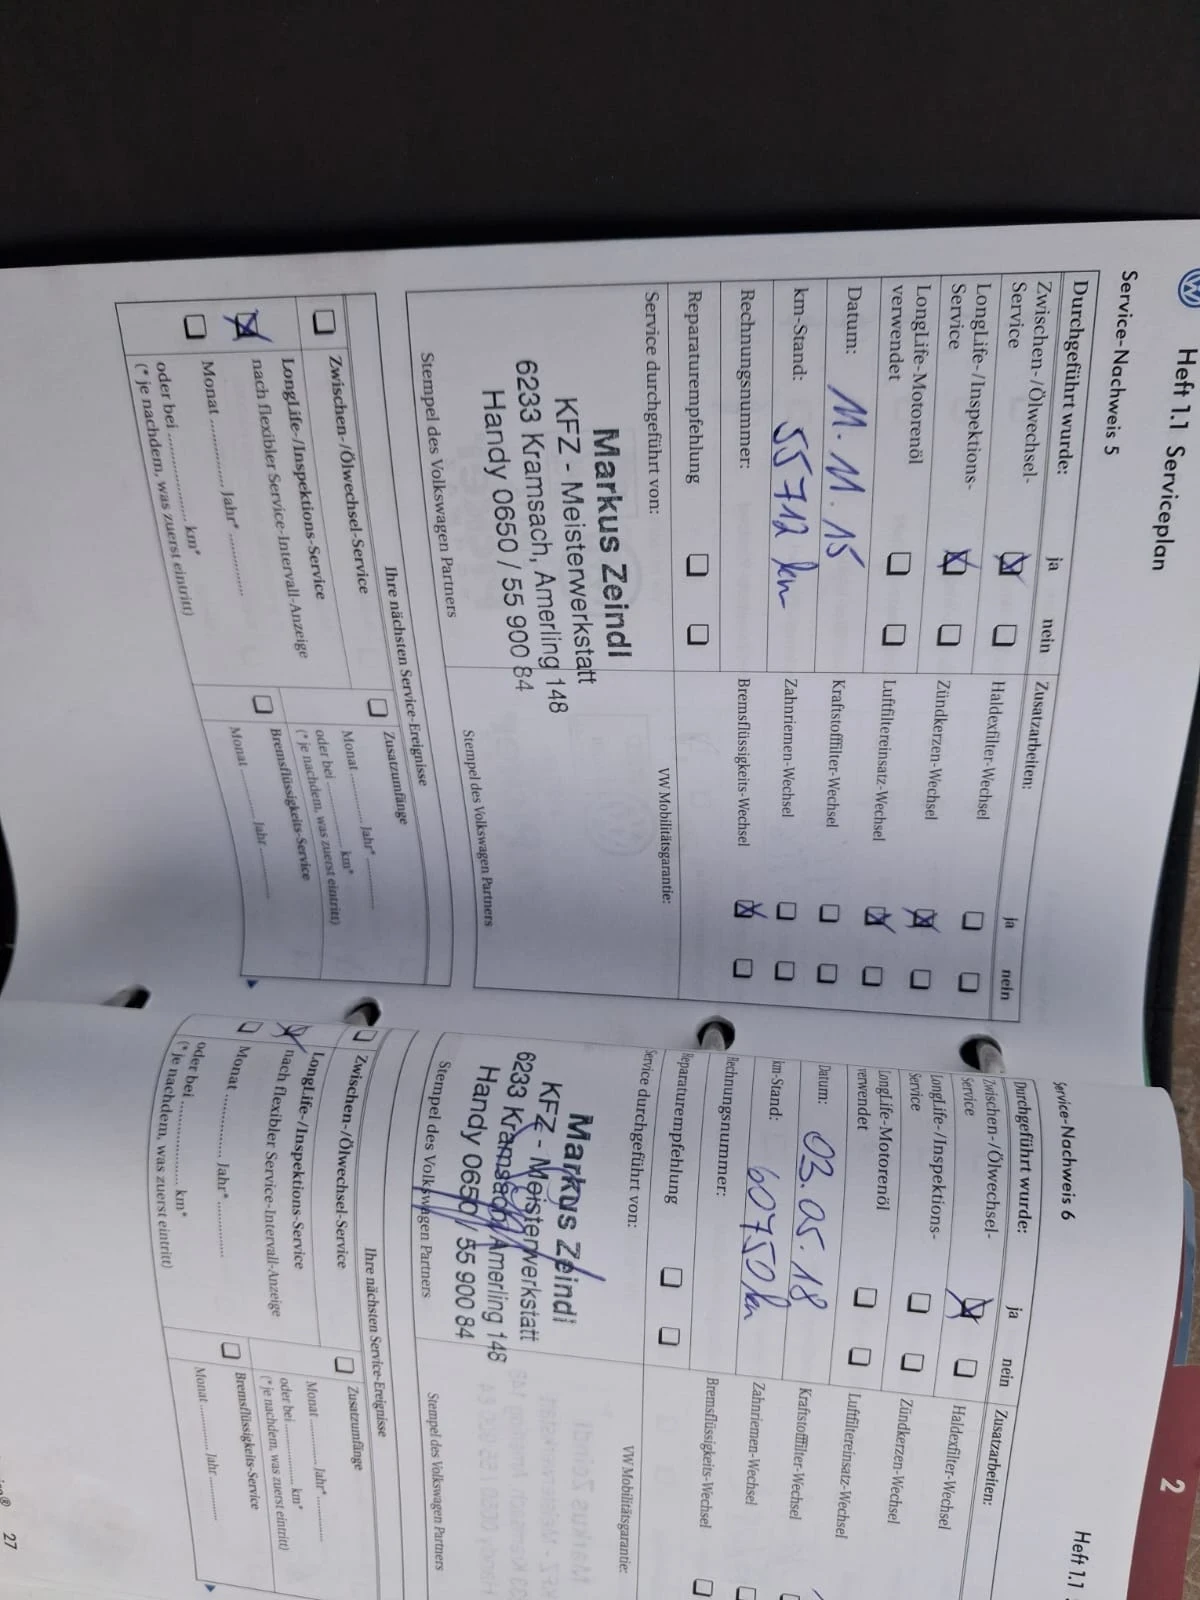 Heft 1.1 Serviceplan
Service-Nachweis 5
Durchgeführt wurde: ja nein
Zwischen-/Ölwechsel-
Service
LongLife-/Inspektions-
Service
LongLife-Motorenöl
verwendet
Datum: 11.11.15
km-Stand: 55712 km
Rechnungsnummer:
Reparaturempfehlung
Zusatzarbeiten: ja nein
Haldexfilter-Wechsel
Zündkerzen-Wechsel
Luftfiltereinsatz-Wechsel
Kraftstofffilter-Wechsel
Zahnriemen-Wechsel
Bremsflüssigkeits-Wechsel
Service durchgeführt von:
Markus Zeindl
KFZ - Meisterwerkstatt
6233 Kramsach, Amerling 148
Handy 0650 / 55 900 84
Stempel des Volkswagen Partners
VW Mobilitätsgarantie:
Stempel des Volkswagen Partners
Ihre nächsten Service-Ereignisse
Zwischen-/Ölwechsel-Service
LongLife-/Inspektions-Service
nach flexibler Service-Intervall-Anzeige
Monat ............ Jahr* ............
oder bei .................... km*
(*je nachdem, was zuerst eintritt)
Zusatzumfänge
Monat ............ Jahr* ............
oder bei .................... km*
(*je nachdem, was zuerst eintritt)
Bremsflüssigkeits-Service
Monat ............ Jahr ............
2
Heft 1.1
Service-Nachweis 6
Durchgeführt wurde: ja nein
Zwischen-/Ölwechsel-
Service
LongLife-/Inspektions-
Service
LongLife-Motorenöl
verwendet
Datum: 03.05.18
km-Stand: 60750 km
Rechnungsnummer:
Reparaturempfehlung
Zusatzarbeiten:
Haldexfilter-Wechsel
Zündkerzen-Wechsel
Luftfiltereinsatz-Wechsel
Kraftstofffilter-Wechsel
Zahnriemen-Wechsel
Bremsflüssigkeits-Wechsel
Service durchgeführt von:
Markus Zeindl
KFZ - Meisterwerkstatt
6233 Kramsach, Amerling 148
Handy 0650 / 55 900 84
Stempel des Volkswagen Partners
VW Mobilitätsgarantie:
Stempel des Volkswagen Partners
Ihre nächsten Service-Ereignisse
Zwischen-/Ölwechsel-Service
LongLife-/Inspektions-Service
nach flexibler Service-Intervall-Anzeige
Monat ............ Jahr* ............
oder bei .................... km*
(*je nachdem, was zuerst eintritt)
Zusatzumfänge
Monat ............ Jahr* ............
oder bei .................... km*
(*je nachdem, was zuerst eintritt)
Bremsflüssigkeits-Service
Monat ............ Jahr ............
27